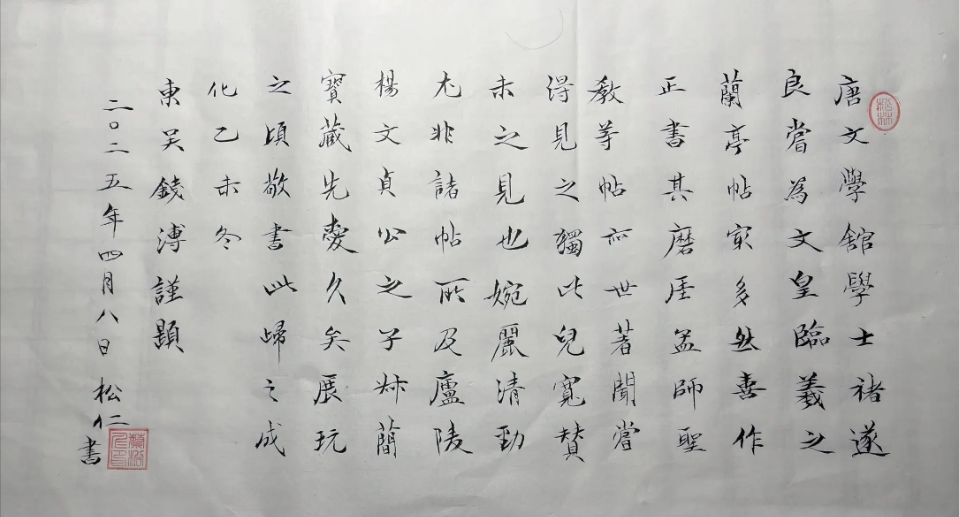 唐文學舘學士褚遂
良嘗為文皇臨羲之
蘭亭帖㝡多然善作
正書其磨崖孟師聖
教等帖亦世著聞嘗
得見之獨此兒寬贊
未之見也婉麗清勁
尤非諸帖所及廬陵
楊文貞公之子叔蕳
寳藏先愛久矣展玩
之頃敬書此歸之成
化乙未冬
東吴錢溥謹題
二〇二五年四月八日 松仁書